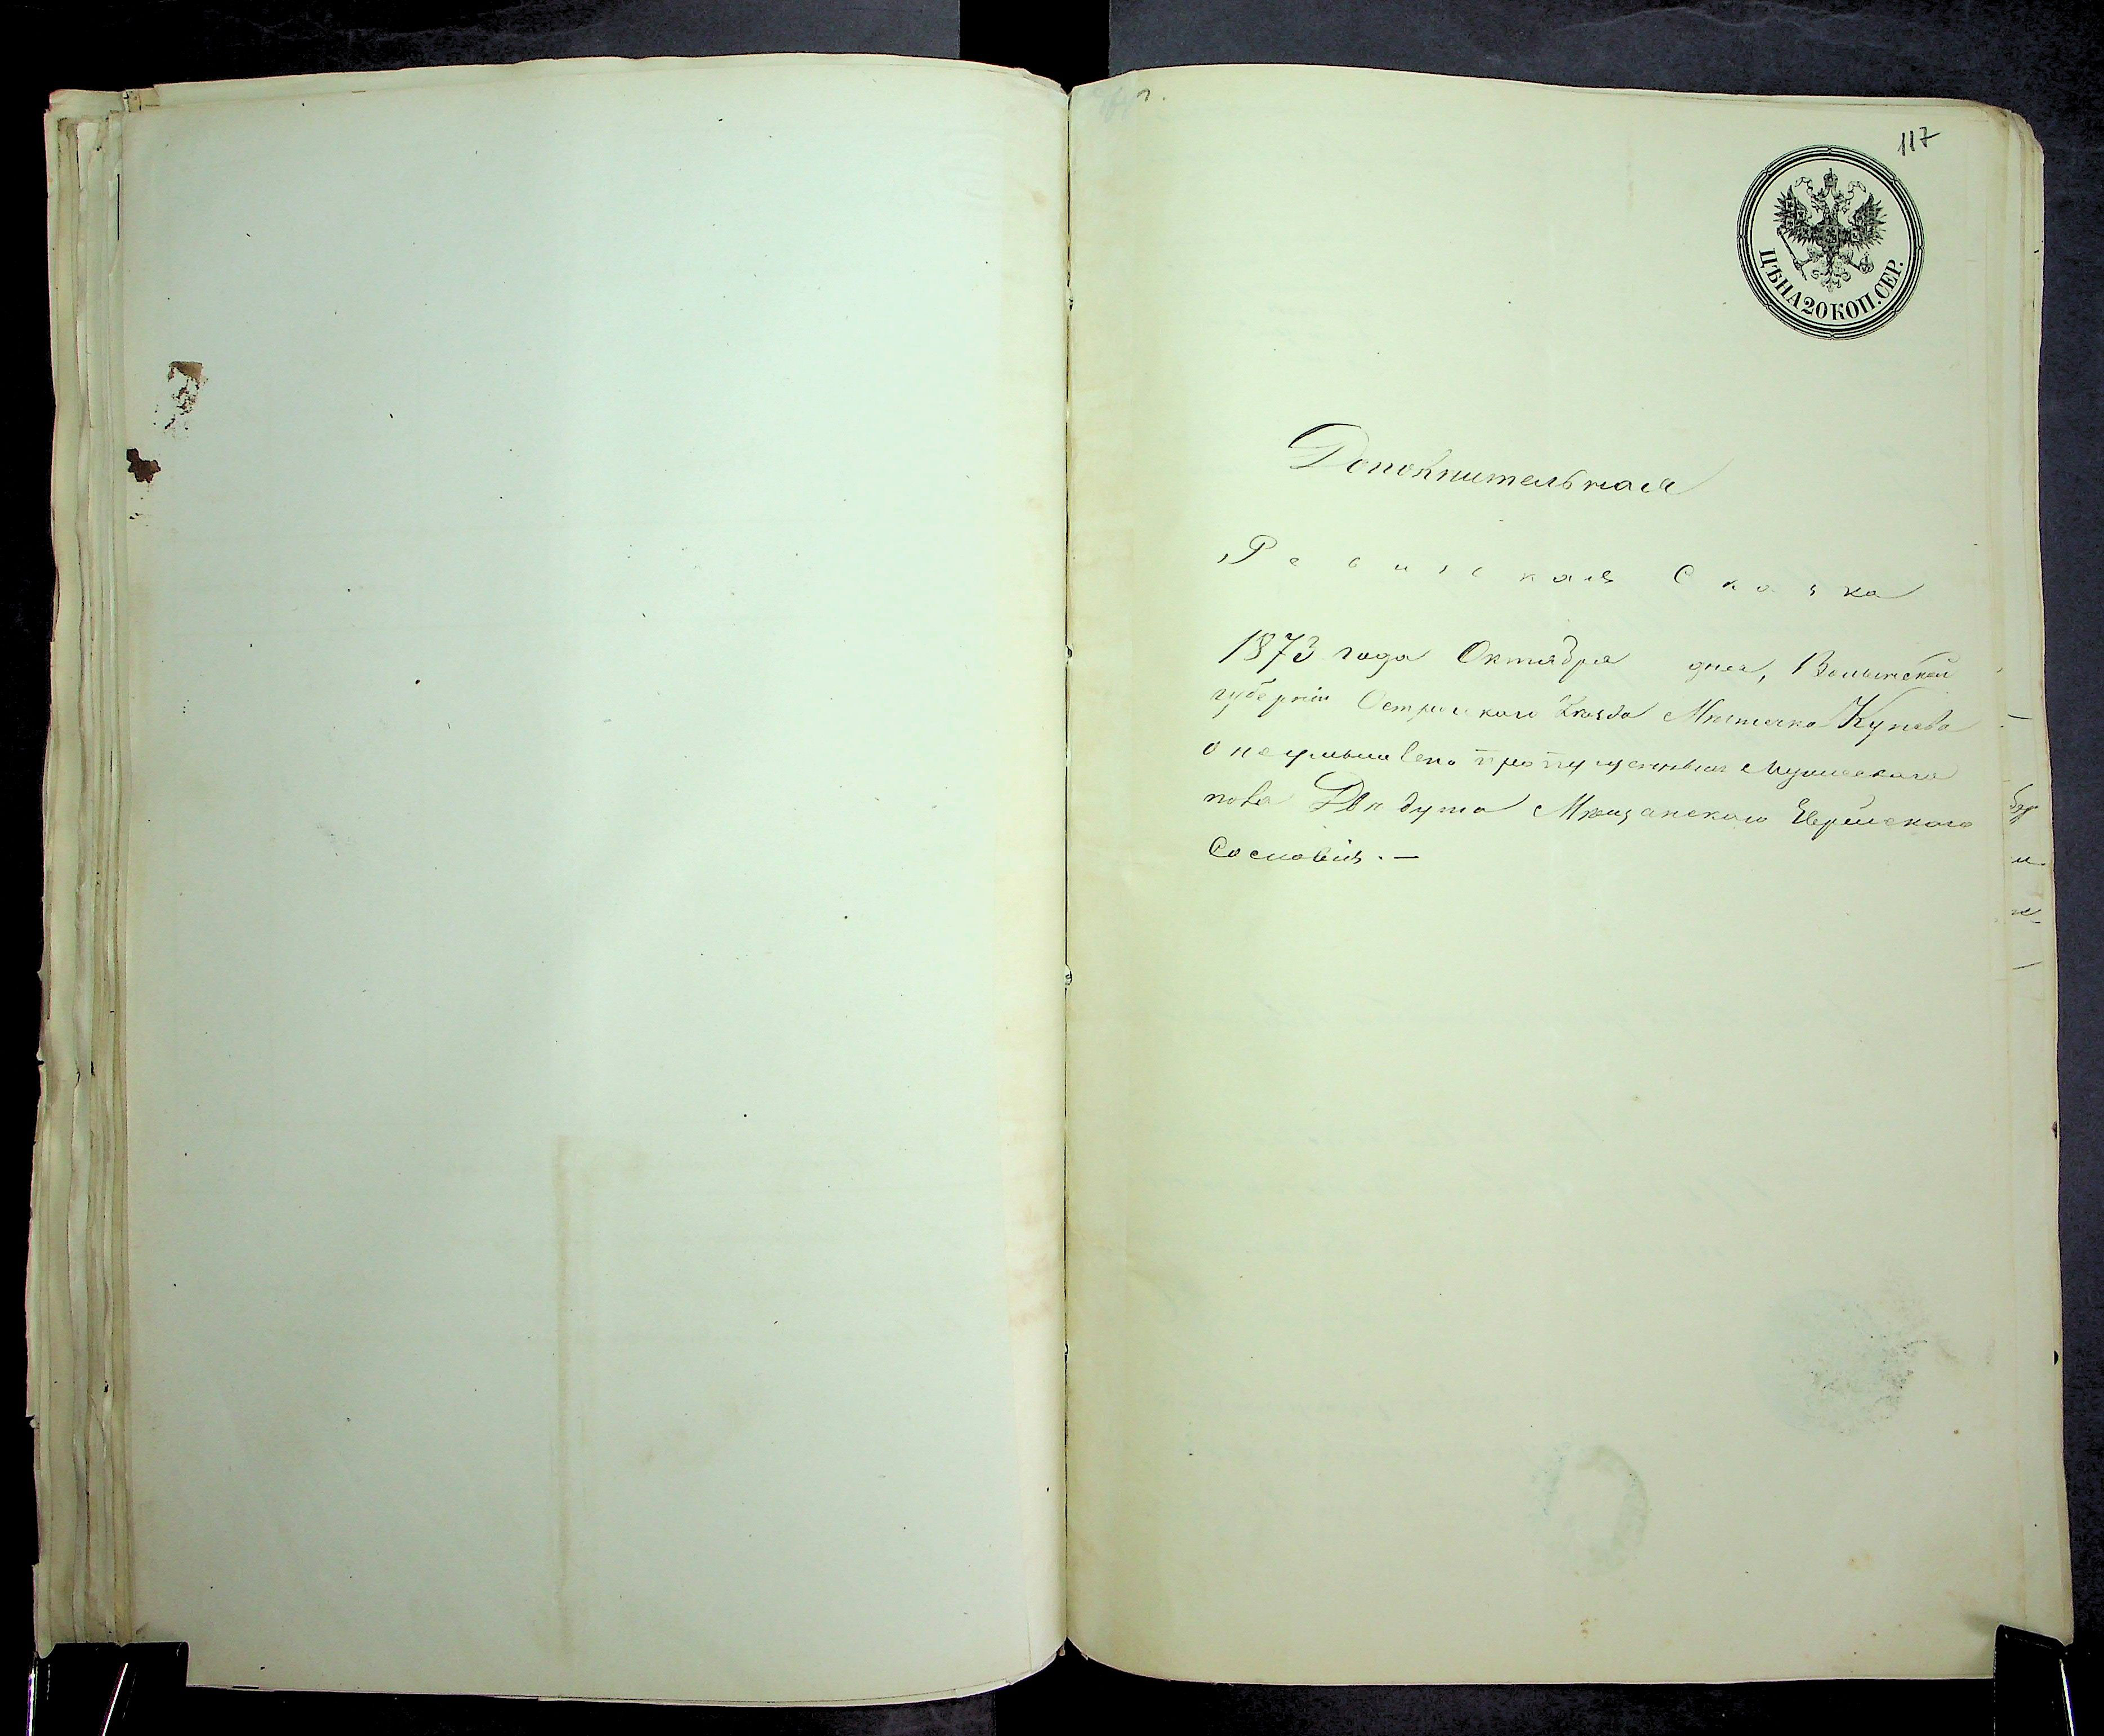 117
ЦѢНА 20 КОП. СЕР.
Дополнительная
Ревизская Сказка
1873 года Октября дня, Волынской
губернiи Острогскаго Уѣзда Мѣстечка Кунева
о неумышлено пропущенныхъ Мужескаго
пола Двѣ душа Мѣщанскаго Еврейскаго
Сословiя. —